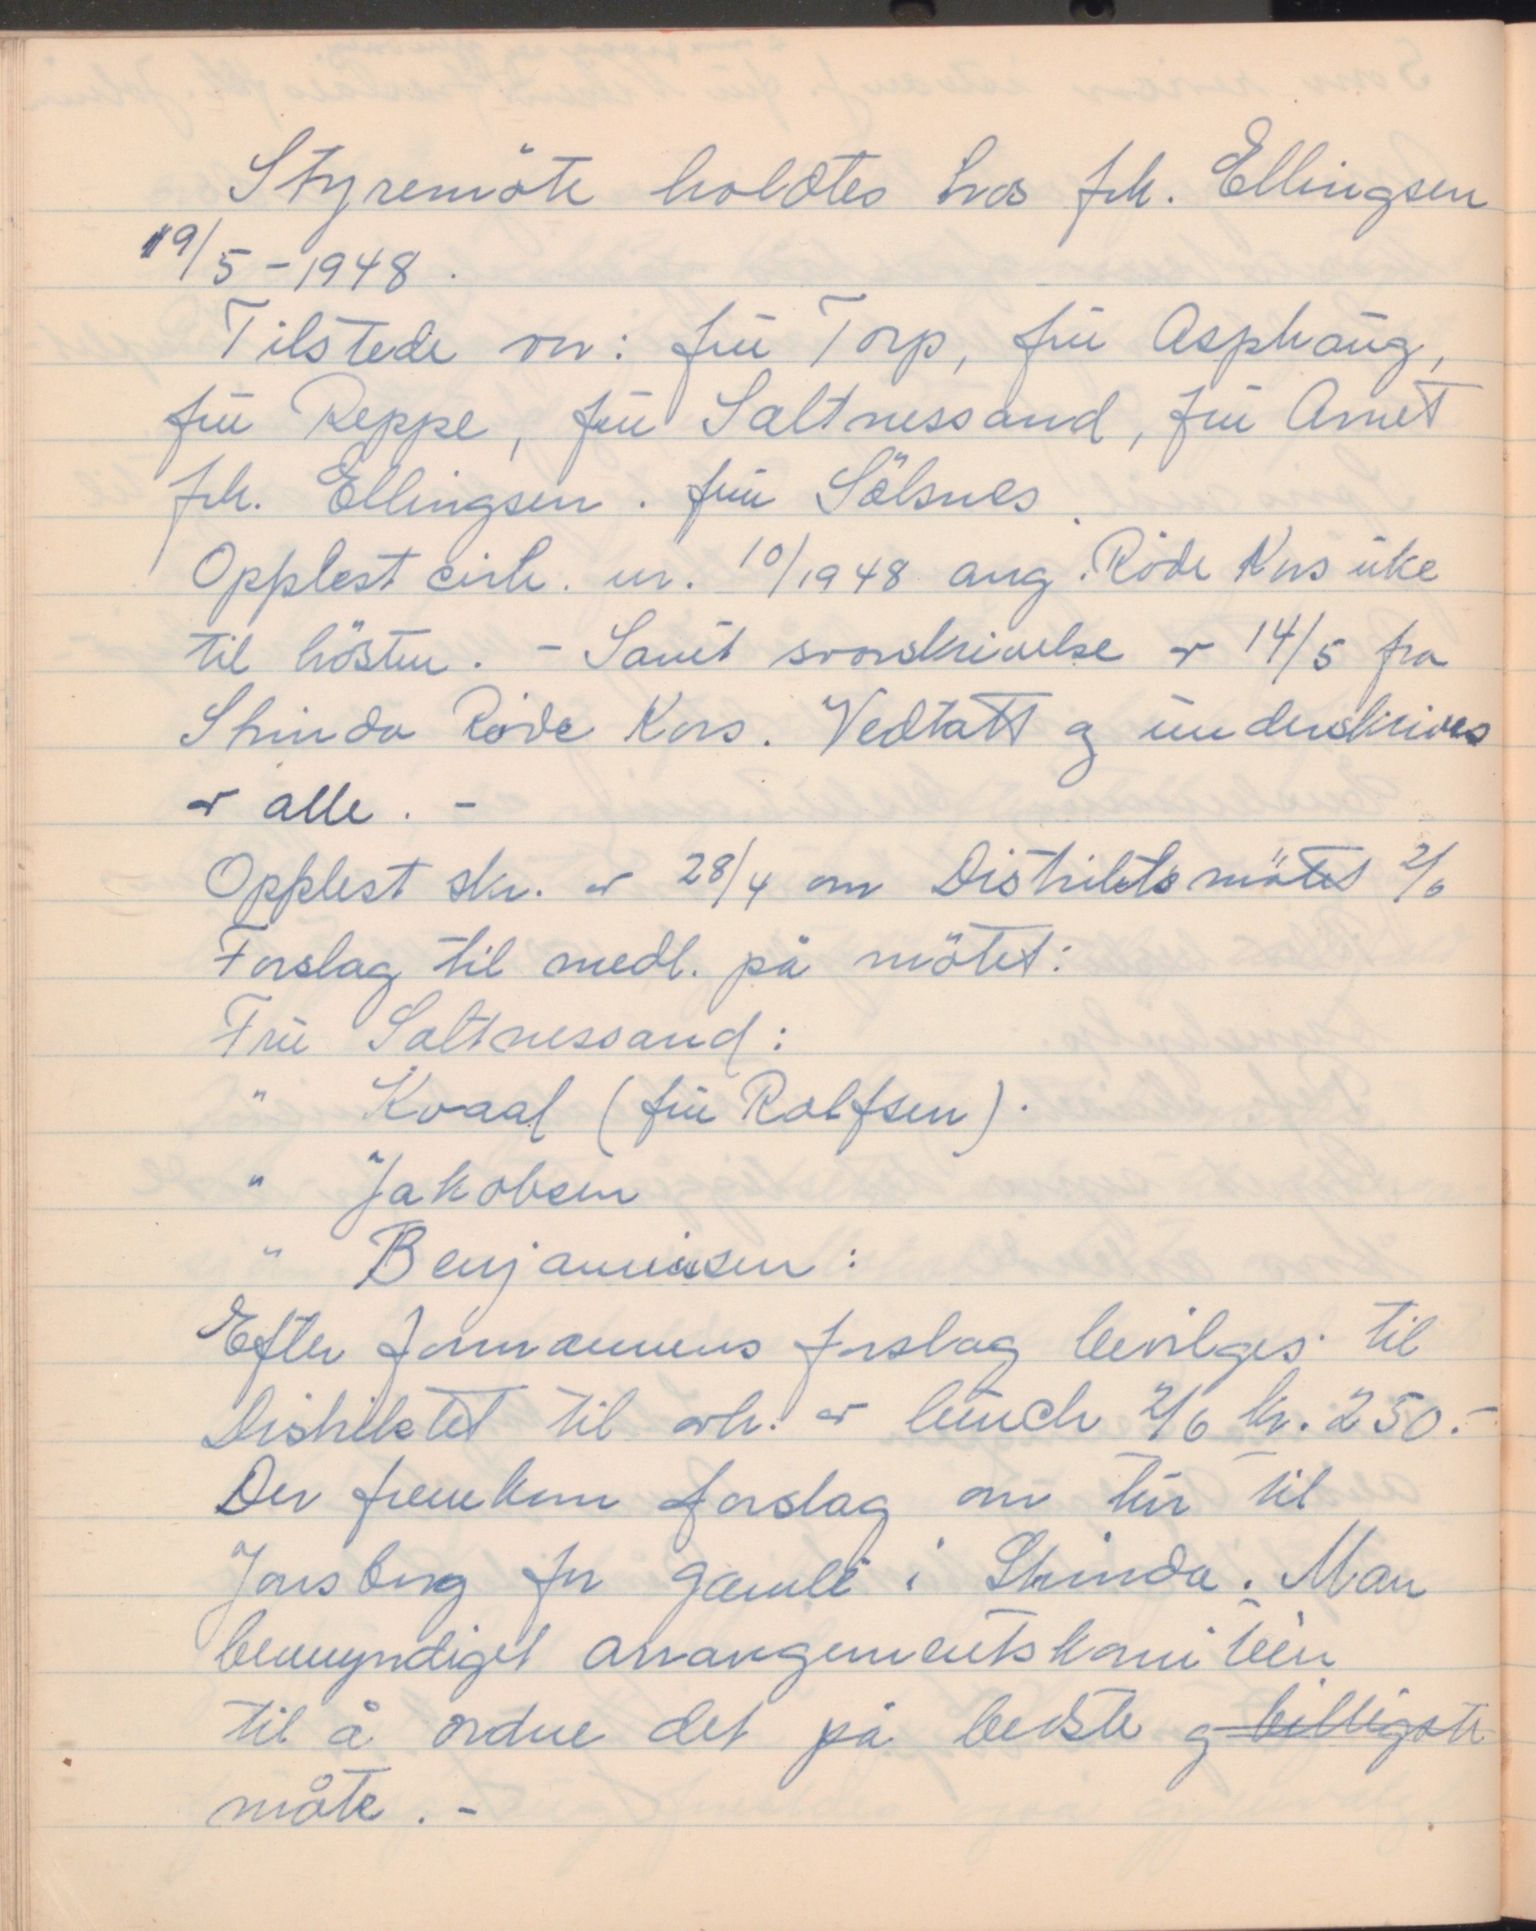 Styremöte holdtes hos frk. Ellingsen
19/5-1948.
Tilstede var: frü Torp, frü Asphaüg,
frü Reppe, frü Saltnessand, frü Arnet
frk. Ellingsen. frü Sölsnes.
Opplest cirk. nr. 10/1948 ang. Röde Kors üke
til hösten. - Samt svarskrivelse av 14/5 fra
Strinda Röde Kors. Vedtatt og ünderskrives
av alle. -
Opplest skr. av 28/4 om Distriktsmötet 2/6
Forslag til medl. på mötet:
Frü Saltnessand:
" Kvaal (frü Rolfsen).
" Jakobsen
" Benjaminsen:
Efter formannens forslag bevilges til
Distriktet til arh. av lünch 2/6 kr. 250.-
Der fremkom forslag om tür til
Jonsborg for gamle i Strinda. Man
bemyndiget arrangementskomitéen
til å ordne det på bedste og billigste
måte. -